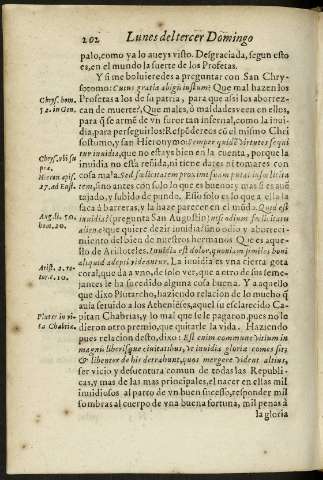 202 Lunes del tercer Domingo
palo, como ya lo aueys visto. Desgraciada, segun esto
es, en el mundo la suerte de los Profetas.
Y si me boluieredes a preguntar con San Chry-
sotomo: Cuius gratia abigis iustum? Que mal hazen los
Chrys. hom.
Profetas a los de su patria, para que assi los aborrez-
52. in Gen.
can de muerte? Que males, ò maldades veen en ellos,
para q̃ se armẽ de vn furor tan infernal, como la inui-
dia, para perseguirlos? Respõdereos cõ el mismo Chri
sostomo, y san Hieronymo: Semper quidẽ virtutes sequi
tur inuidia, que no estays bien en la cuenta, porque la
Chrys. vbi su
inuidia no està reñida, ni tiene dares ni tomares con
pra.
cosa mala. Sed fœlicitatem proximi suam putat infœlicita
Hieron. epis.
tem, sino antes con solo lo que es bueno: y mas si es auẽ
27. ad Eust.
tajado, y subido de punto. Esso solo es lo que a ella la
saca à barreras, y la haze parecer en el mũdo. Quid est
Aug. li. 50.
inuidia? (pregunta San Augustin)
hom. 20.
aliena, que quiere dezir inuidia? sino odio y aborreci-
miento del bien de nuestros hermanos. Que es aque-
llo de Aristoteles. Inuidia est dolor, quoniam similes boni
aliquid adepti videantur. La inuidia es vna cierta gota
Arist. 2. re-
coral, que da a vno, de solo ver, que a otro de sus seme-
tor. c. 10.
jantes le ha sucedido alguna cosa buena. Y a aquello
que dixo Plutarcho, haziendo relacion de lo mucho q̃
auia seruido a los Atheniẽses, aquel su esclarecido Ca-
Plutar. in vi-
pitan Chabrias, y lo mal que se le pagaron, pues no le
ta Chabriæ.
dieron otro premio, que quitarle la vida. Haziendo
pues relacion desto, dixo: Est enim commune vitium in
magnis liberisque ciuitatibus, vt inuidia gloriæ comes sit,
& libenter de his detrahunt, quos mergere vident altius,
ser vicio y desuentura comun de todas las Republi-
cas, y mas de las mas principales, el nacer en ellas mil
inuidiosos al parto de vn buen sucesso, responder mil
sombras al cuerpo de vna buena fortuna, mil penas à
la gloria